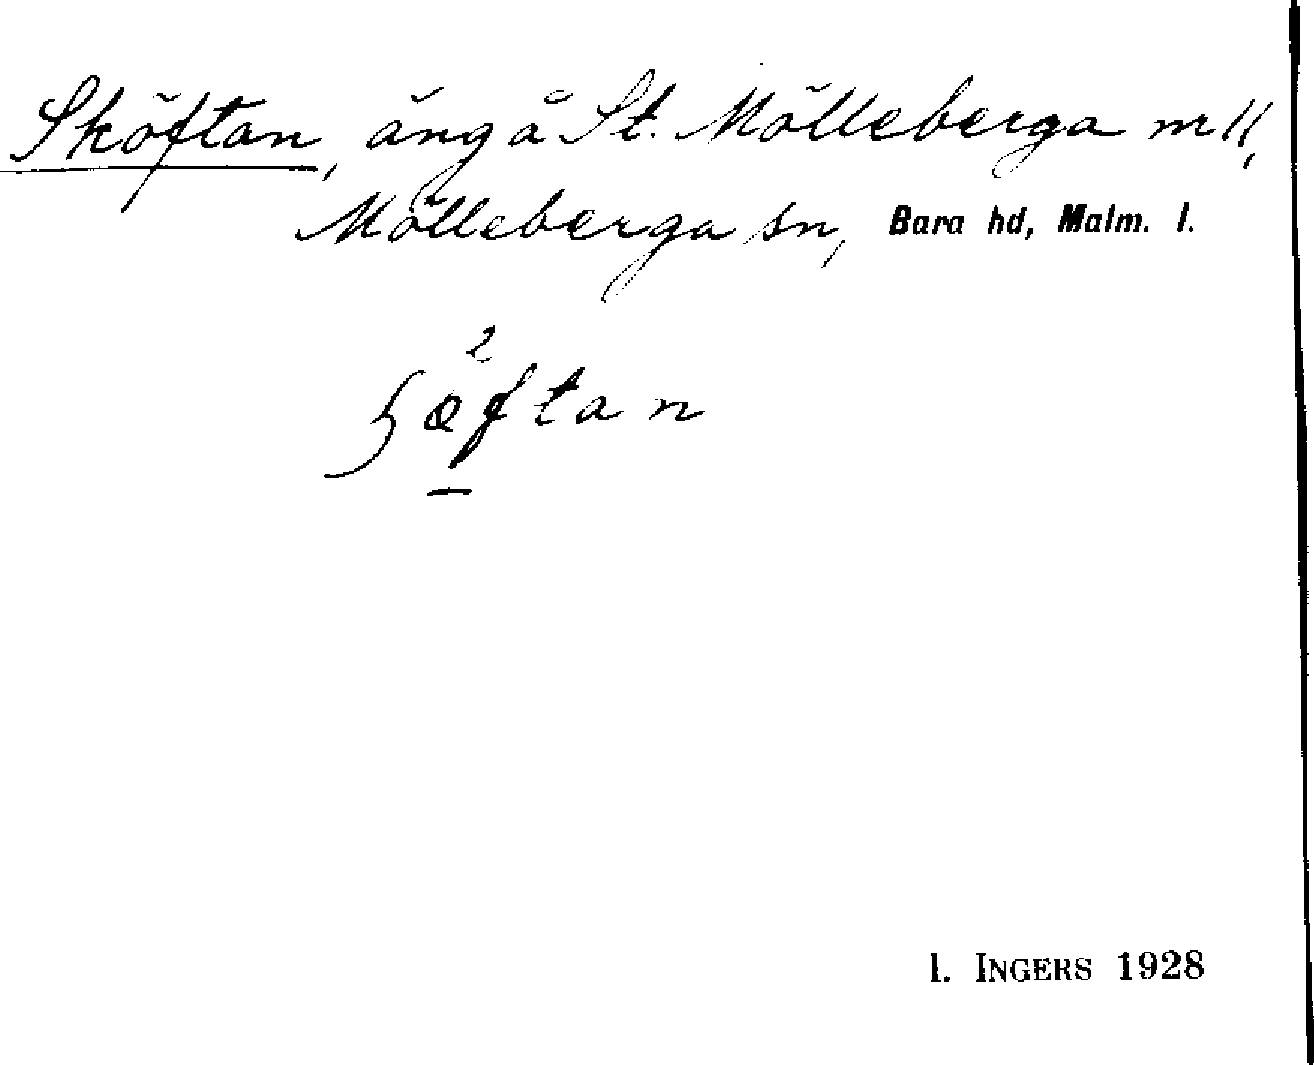 Sköftan, äng å St. Mölleberga nr 11,
Mölleberga sn, Bara hd, Malm. l.
2
ɧøftan
I. INGERS 1928